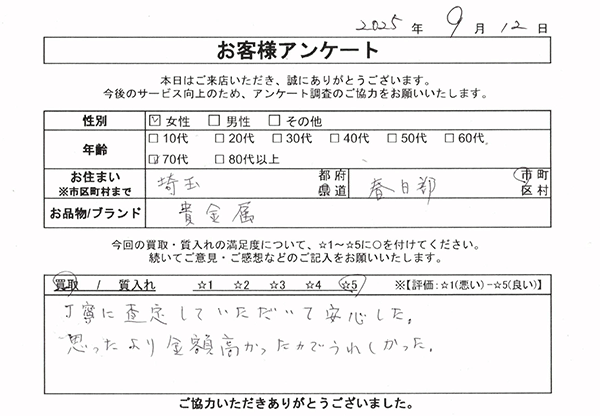 2025 年 9 月 12 日
お客様アンケート
本日はご来店いただき、誠にありがとうございます。
今後のサービス向上のため、アンケート調査のご協力をお願いいたします。
性別 ☑ 女性 □ 男性 □ その他
年齢 □ 10代 □ 20代 □ 30代 □ 40代 □ 50代 □ 60代
☑ 70代 □ 80代以上
お住まい ※市区町村まで 埼玉 都府県道 春日部 市町区村
お品物/ブランド 貴金属
今回の買取・質入れの満足度について、☆1～☆5に○を付けてください。
続いてご意見・ご感想などのご記入をお願いします。
買取 / 質入れ ☆1 ☆2 ☆3 ☆4 ☆5 ※【評価:☆1(悪い)−☆5(良い)】
丁寧に査定していただいて安心した。
思ったより金額高かったのでうれしかった。
ご協力いただきありがとうございました。